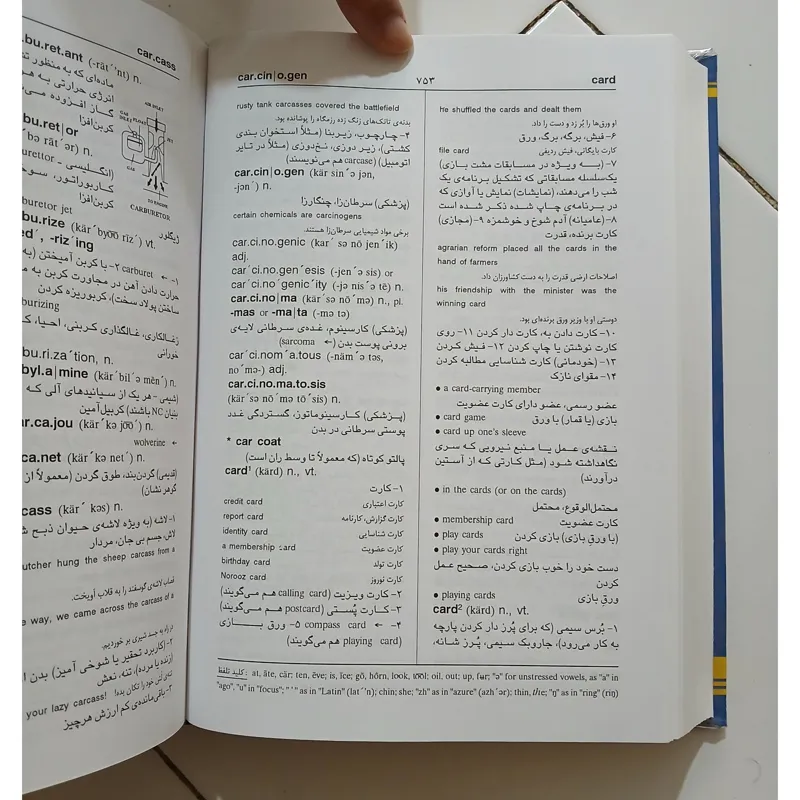 .bu.ret.ant (-rāt´´nt) n.
car.cass
ماده‌ای که به منظور
انرژی حرارتی به
گاز افزوده
کربن‌افزا
AIR INLET
JET
GAS
TO ENGINE
CARBURETOR
bu.ret|or
n.
(انگلیسی -
کاربوراتور،
کربن‌افزا
buretor jet
ژیگلور
bu.rize (kär´byoo rīz´) vt.
ed´, -riz´ing
۱- ← carburet ۲- با کربن آمیختن (به
حرارت دادن آهن در مجاورت کربن به
ساختن پولاد سخت)، کربوریزه کردن
burizing
زغالکاری، غالگذاری کربنی، احیا،
خورانی
bu.ri.za´tion, n.
byl.a|mine (kär´bil´ə mēn´) n.
(شیمی - هر یک از سیانیدهای آلی که
بنیان NC باشند) کربیل‌آمین
ar.ca.jou (kär´kə joo´) n.
wolverine ←
ca.net (kär´kə net´) n.
(قدیمی) گردن‌بند، طوق گردن (معمولاً از
گوهرنشان)
cass (kär´ kəs) n.
۱- لاشه (به ویژه لاشه‌ی حیوان ذبح
لاش، جسم بی جان، مردار
butcher hung the sheep carcass from a
قصاب لاشه‌ی گوسفند را به قلاب آویخت.
e way, we came across the carcass of a
در راه به جسد شیری بر خوردیم.
۲- (کاربرد تحقیر یا شوخی آمیز) بدن
(زنده یا مرده)، تنه، نعش
your lazy carcass! تنه‌ی لش خود را تکان بده!
۳- باقی‌مانده‌ی کم ارزش هرچیز
car.cin|o.gen
۷۵۳
card
rusty tank carcasses covered the battlefield
بدنه‌ی تانک‌های زنگ زده رزمگاه را پوشانده بود.
۴- چارچوب، زیربنا (مثلاً استخوان بندی
کشتی)، زیر دوزی، نخ‌دوزی (مثلاً در تایر
اتومبیل) (carcase هم می‌نویسند)
car.cin|o.gen (kär sin´ə jən,
-jən´) n.
(پزشکی) سرطان‌زا، چنگارزا
certain chemicals are carcinogens
برخی مواد شیمیایی سرطان‌زا هستند.
car.ci.no.genic (kar´ sə nō jen´ik)
adj.
car´ci.no´gen´esis (-jen´ə sis) or
car´ci.no´genic´ity (-jə nis´ə tē) n.
car.ci.no|ma (kär´sə nō´mə) n., pl.
-mas or -ma|ta (-mə tə)
(پزشکی) کارسینوم، غده‌ی سرطانی لایه‌ی
برونی پوست بدن (← sarcoma)
car´ci.nom´a.tous (-näm´ə təs,
no´´mə-) adj.
car.ci.no.ma.to.sis
(kär´sə nō´mə tō´sis) n.
(پزشکی) کارسینوماتوز، گستردگی غدد
پوستی سرطانی در بدن
* car coat
پالتو کوتاه (که معمولاً تا وسط ران است)
card¹ (kärd) n., vt.
۱- کارت
credit card کارت اعتباری
report card کارت گزارش، کارنامه
identity card کارت شناسایی
a membership card کارت عضویت
birthday card کارت تولد
Norooz card کارت نوروز
۲- کارت ویزیت (calling card هم می‌گویند)
۳- کارت پُستی (postcard هم می‌گویند)
۴- ← compass card ۵- ورق بازی
(playing card هم می‌گویند)
he shuffled the cards and dealt them
او ورق‌ها را بُر زد و دست را داد.
۶- فیش، برگه، برگ، ورق
file card کارت بایگانی، فیش ردیفی
۷- (به ویژه در مسابقات مشت بازی)
یک‌سلسله مسابقاتی که تشکیل برنامه‌ی یک
شب را می‌دهند، (نمایشات) نمایش یا آوازی که
در برنامه‌ی چاپ شده ذکر شده است
۸- (عامیانه) آدم شوخ و خوشمزه ۹- (مجازی)
کارت برنده، قدرت
agrarian reform placed all the cards in the
hand of farmers
اصلاحات ارضی قدرت را به دست کشاورزان داد.
his friendship with the minister was the
winning card
دوستی او با وزیر ورق برنده‌ای بود.
۱۰- کارت دادن به، کارت دار کردن ۱۱- روی
کارت نوشتن یا چاپ کردن ۱۲- فیش کردن
۱۳- (خودمانی) کارت شناسایی مطالبه کردن
۱۴- مقوای نازک
● a card-carrying member
عضو رسمی، عضو دارای کارت عضویت
● card game بازی (یا قمار) با ورق
● card up one's sleeve
نقشه‌ی عمل یا منبع نیرویی که سری
نگاهداشته شود (مثل کارتی که از آستین
درآورند)
● in the cards (or on the cards)
محتمل‌الوقوع، محتمل
● membership card کارت عضویت
● play cards (با ورق بازی) بازی کردن
● play your cards right
دست خود را خوب بازی کردن، صحیح عمل
کردن
● playing cards ورق بازی
card² (kärd) n., vt.
۱- بُرس سیمی (که برای پُرز دار کردن پارچه
به کار می‌رود)، جاروبک سیمی، پُرز شانه،
کلید تلفظ: at, āte, cär; ten, ēve; is, īce; gō, hôrn, look, tōōl; oil, out; up, fʉr; "ə" for unstressed vowels, as "a" in
"ago", "u" in "focus"; "´" as in "Latin" (lat´´n); chin; she; "zh" as in "azure" (azh´ər); thin, the; "ŋ" as in "ring" (riŋ)